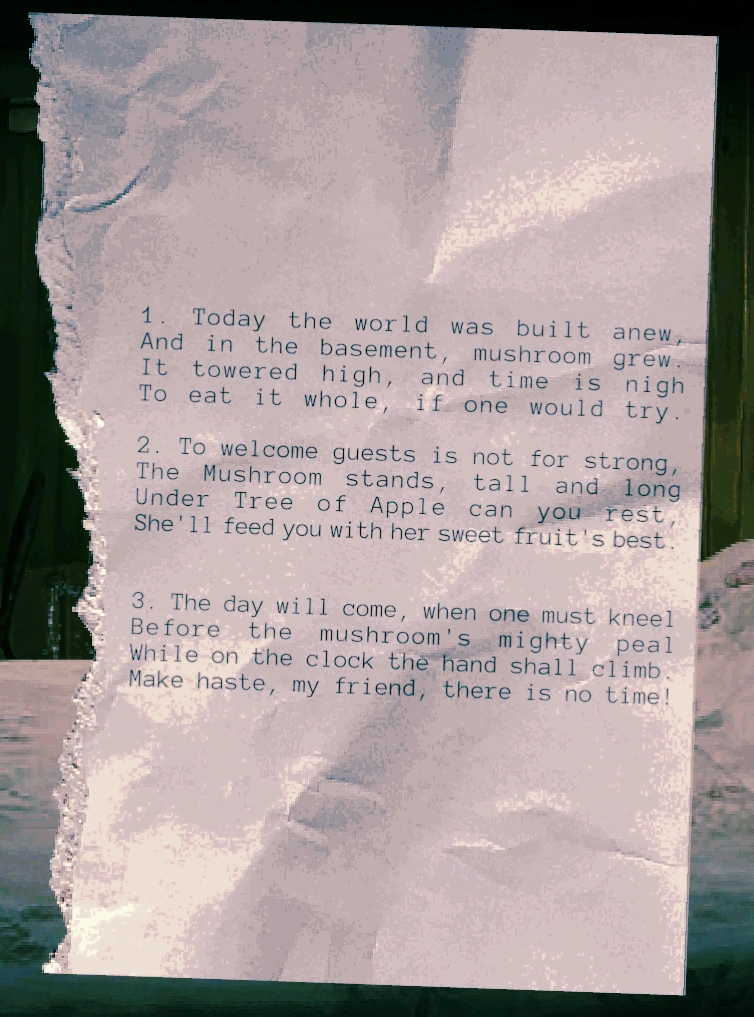 1. Today the world was built anew,
And in the basement, mushroom grew.
It towered high, and time is nigh
To eat it whole, if one would try.
2. To welcome guests is not for strong,
The Mushroom stands, tall and long
Under Tree of Apple can you rest,
She'll feed you with her sweet fruit's best.
3. The day will come, when one must kneel
Before the mushroom's mighty peal
While on the clock the hand shall climb.
Make haste, my friend, there is no time!